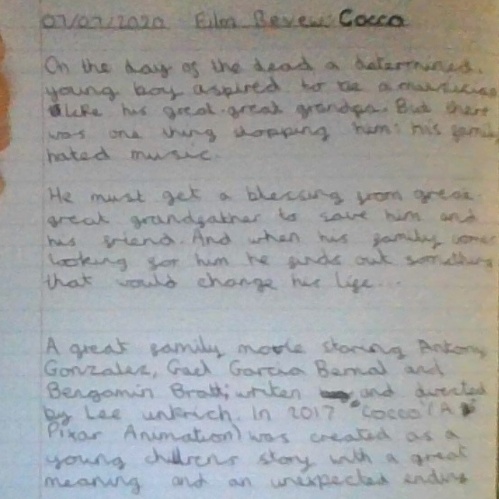 07/07/2020 Film Revew: Cocco
On the day of the dead a determined
young boy aspired to be a musician
like his great-great grandpa. But there
was one thing stopping him: his family
hated music.
He must get a blessing from great-
great grandfather to save him and
his friend. And when his family come
looking for him he finds out something
that would change his life...
A great family movie staring Antony
Gonzalez, Gael Garcia Bernal and
Bengamin Bratt, writen and directed
by Lee unkrich. In 2017 "Cocco" (A
Pixar Animation) was created as a
young childrens story with a great
meaning and an unexpected ending